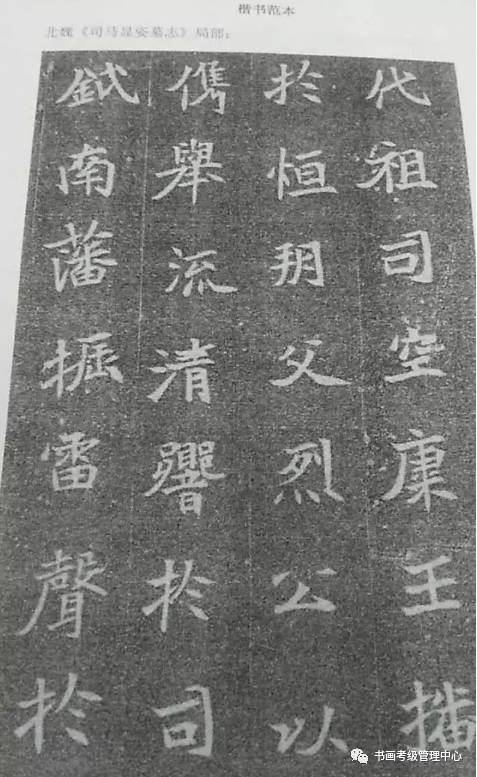 楷书范本
北魏《司马显姿墓志》局部：
代祖司空康王播
於恒玥父烈公以
儁舉流清響於司
鉞南藩振雷聲於
书画考级管理中心